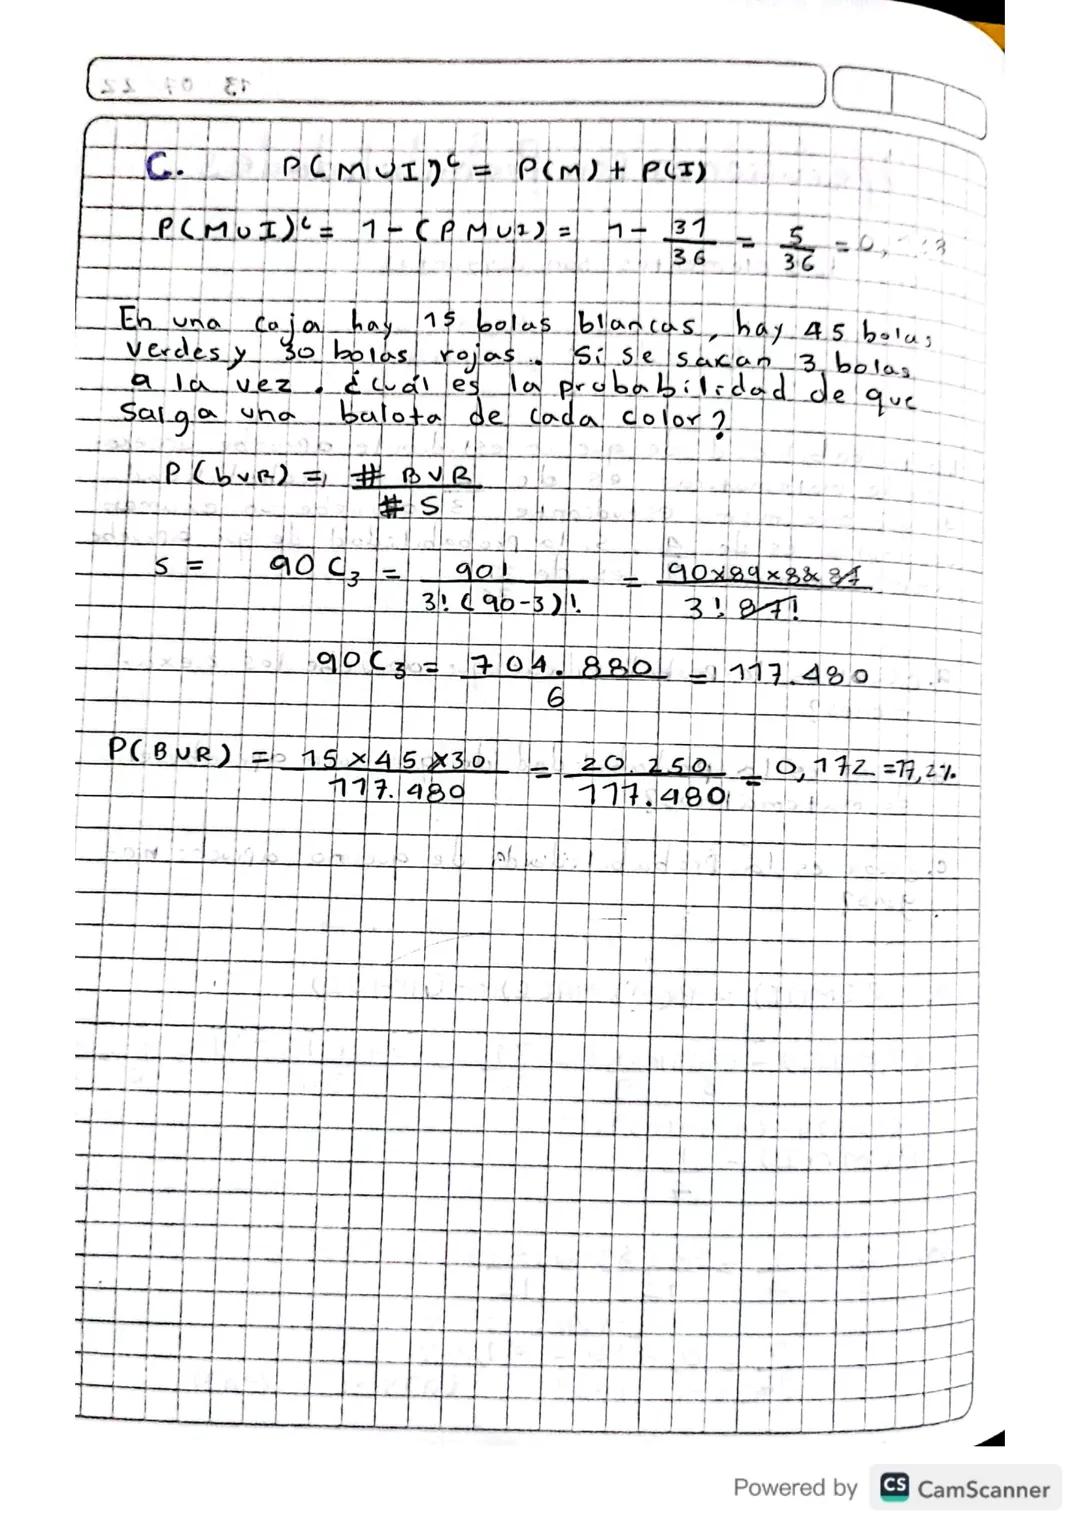 13 07 22
C. P(MUI)ᶜ = P(M) + P(I)
P(MUI)ᶜ = 1 - (PMUI) = 1 - 31/36 = 5/36 = 0,
En una caja hay 15 bolas blancas, hay 45 bolas
verdes y 30 bolas rojas. Si se sacan 3 bolas
a la vez. ¿cuál es la probabilidad de que
salga una balota de cada color?
P(bvR) = # BVR / # S
S = 90C₃ = 90! / 3!(90-3)! = 90x89x88x87 / 3! 87!
90C₃ = 704.880 / 6 = 117.480
P(BUR) = 15x45x30 / 117.480 = 20.250 / 117.480 = 0,172 = 17,2%
Powered by CS CamScanner